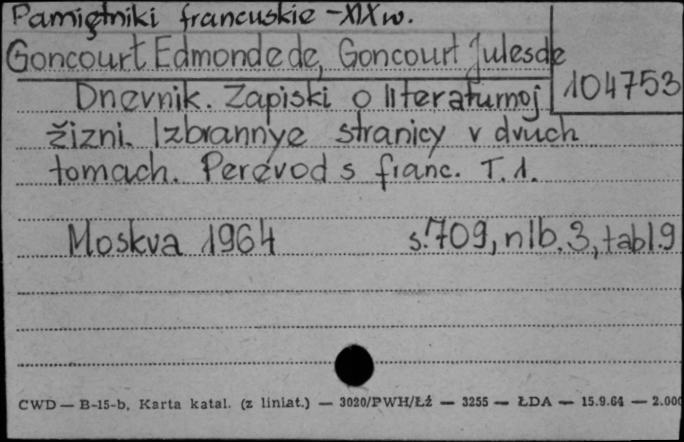 Pamiętniki francuskie - XIX w.
Goncourt Edmonde de, Goncourt Jules de
104753
Dnevnik. Zapiski o literaturnoj
žizni. Izbrannye stranicy v dvuch
tomach. Perevod s franc. T. 1.
Moskva 1964 s. 709, nlb. 3, tabl. 9
CWD — B-15-b, Karta katal. (z liniat.) — 3020/PWH/Łź — 3255 — ŁDA — 15.9.64 — 2.000